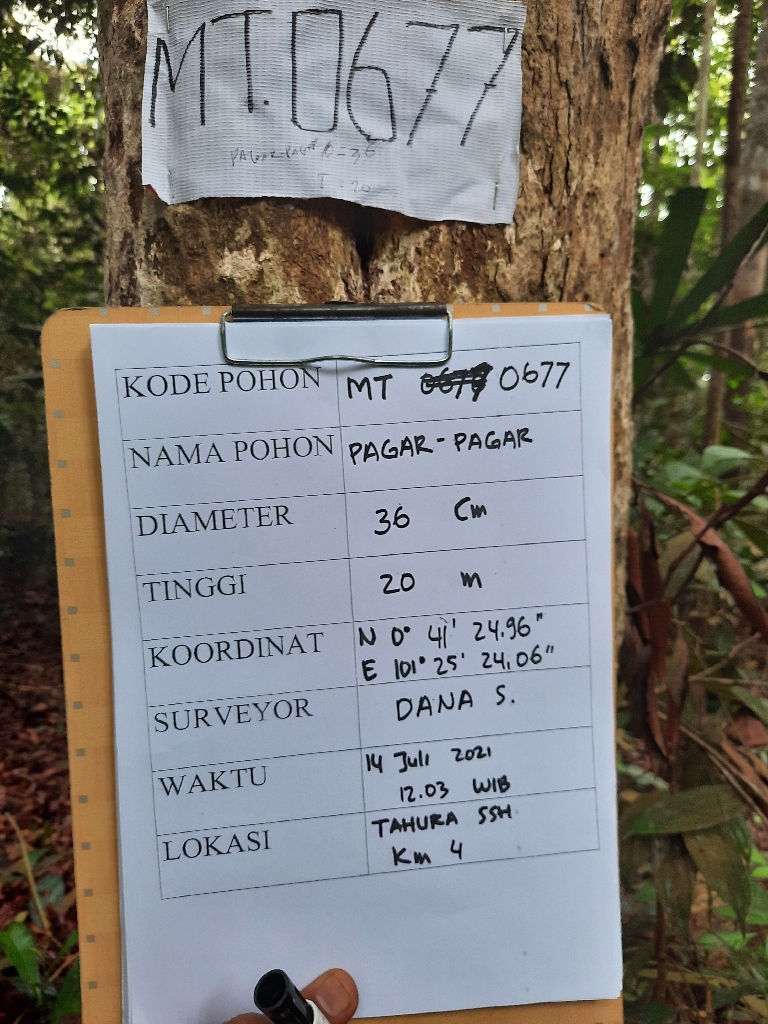 MT.0677
PAGAR-PAGAR D=36
T. 20
KODE POHON MT 0677
NAMA POHON PAGAR-PAGAR
DIAMETER 36 Cm
TINGGI 20 m
KOORDINAT N 0° 41' 24.96"
E 101° 25' 24.06"
SURVEYOR DANA S.
WAKTU 14 Juli 2021
12.03 WIB
LOKASI TAHURA SSH
Km 4